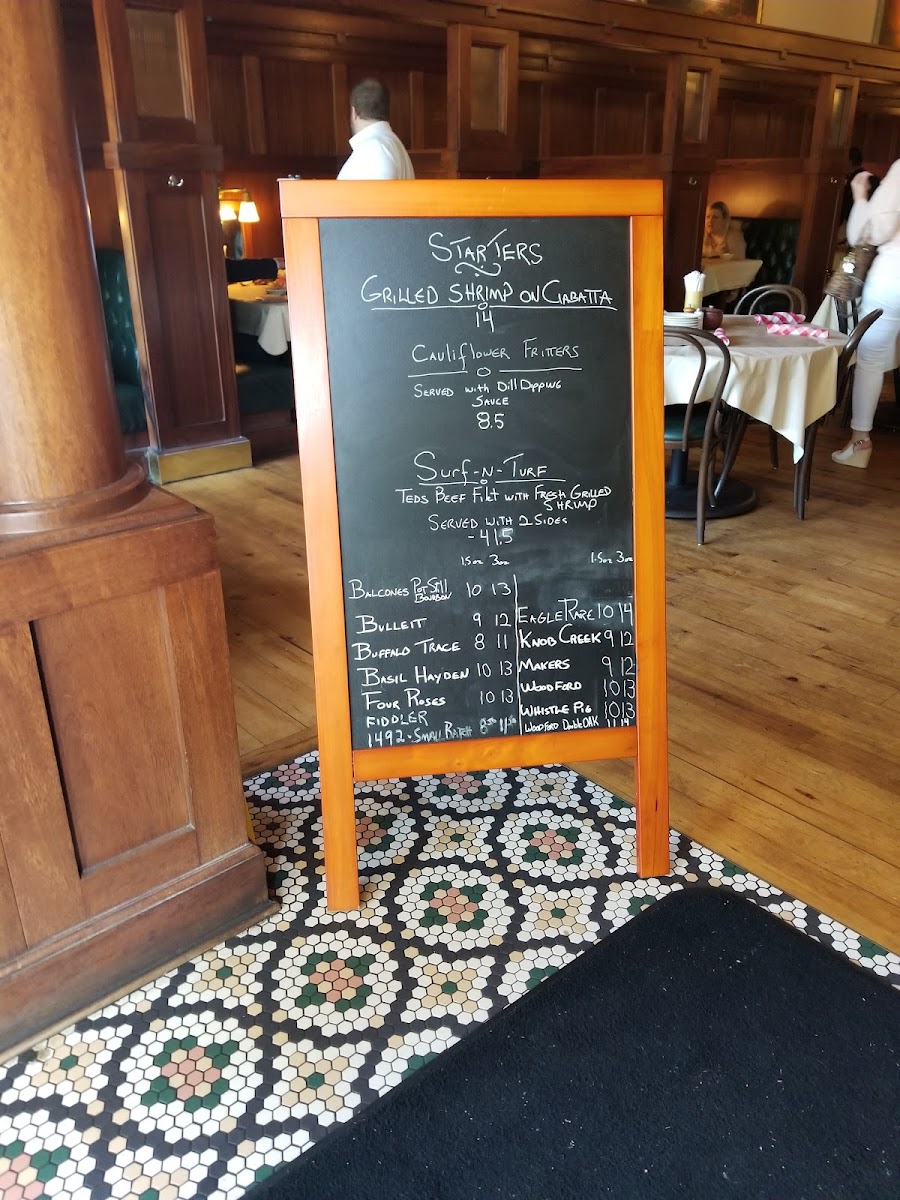 STARTERS
GRILLED SHRIMP ON CIABATTA
14
CAULIFLOWER FRITTERS
SERVED WITH DILL DIPPING
SAUCE
8.5
SURF-N-TURF
TEDS BEEF FILET WITH FRESH GRILLED
SHRIMP
SERVED WITH 2 SIDES
-41.5
1.5oz 3oz
BALCONES POT STILL BOURBON 10 13
BULLEIT 9 12
BUFFALO TRACE 8 11
BASIL HAYDEN 10 13
FOUR ROSES 10 13
FIDDLER
1492-SMALL BATCH
1.5oz 3oz
EAGLE RARE 10 14
KNOB CREEK 9 12
MAKERS 9 12
WOODFORD 10 13
WHISTLE PIG 10 13
WOODFORD DOUBLE OAK 11 14